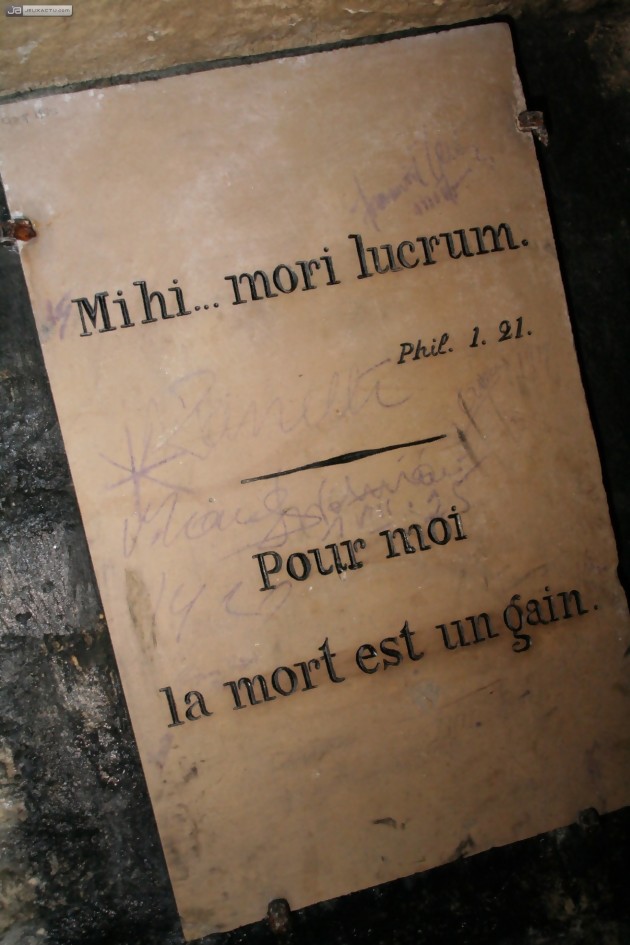 JEUXACTU.com
Mihi... mori lucrum.
Phil. 1. 21.
Pour moi
la mort est un gain.